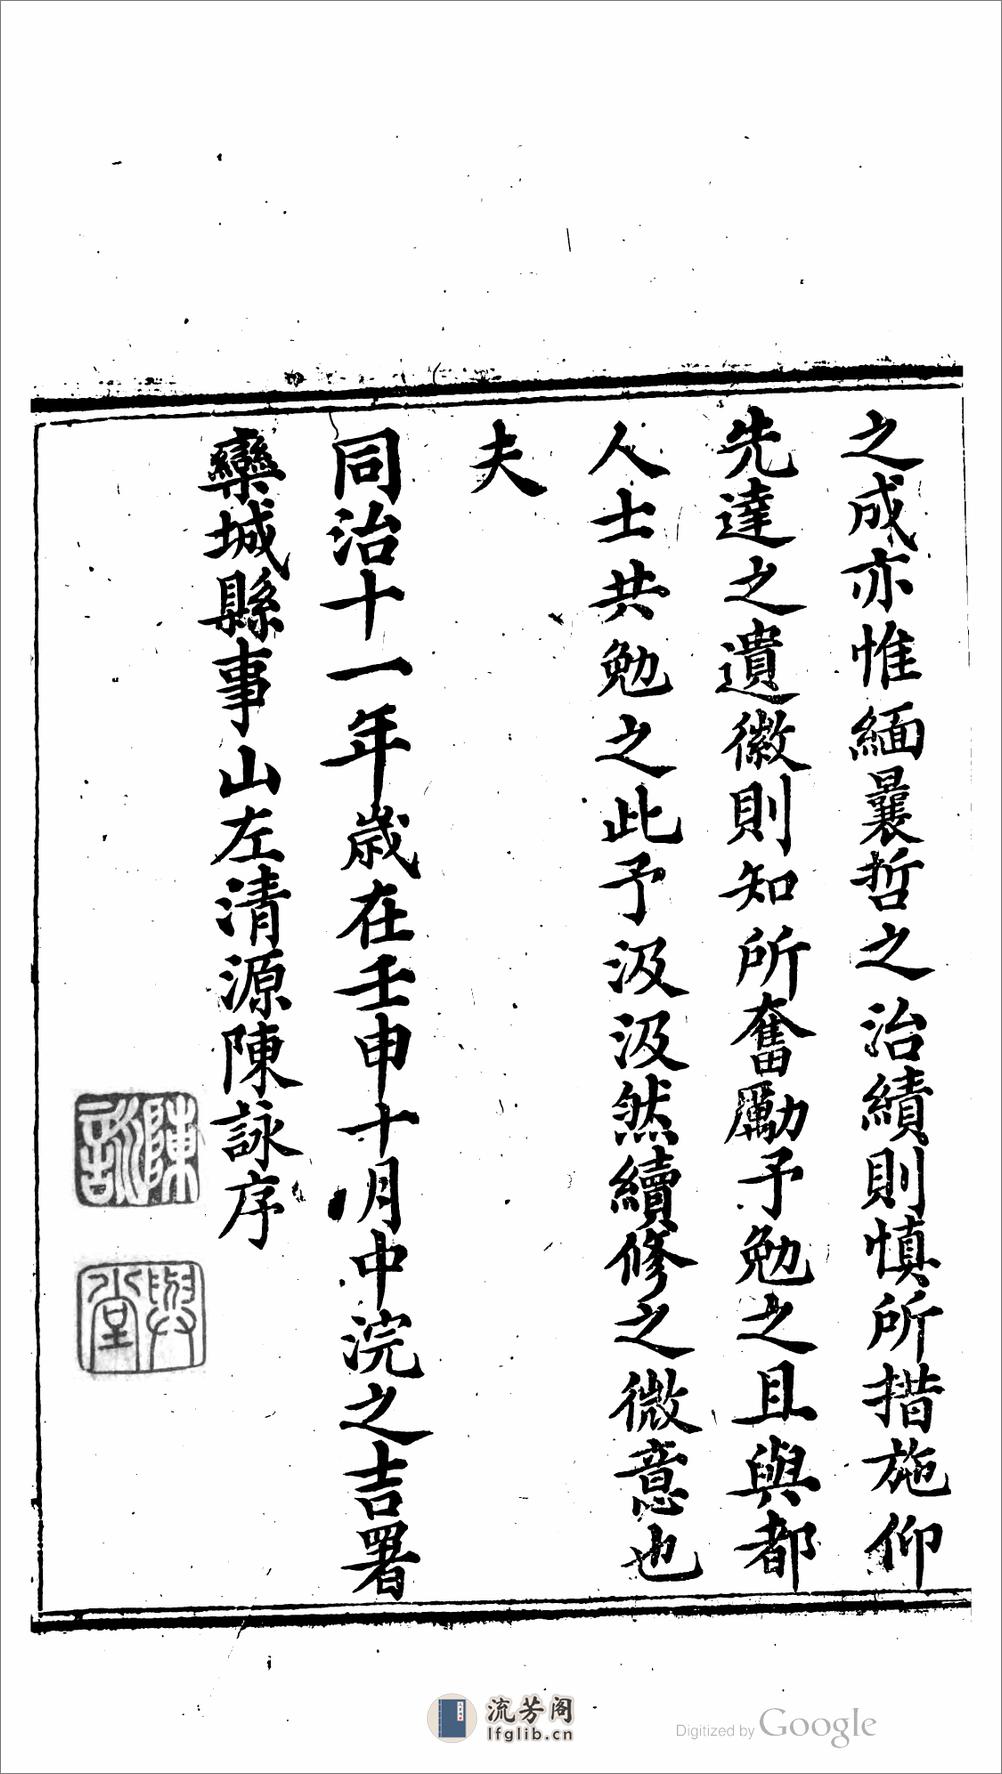 之成亦惟緬曩哲之治績則慎所措施仰
先達之遺徽則知所奮勵予勉之且與都
人士共勉之此予汲汲然續修之微意也
夫
同治十一年歲在壬申十月中浣之吉署
欒城縣事山左清源陳詠序
陳詠
與堂
流芳阁
lfglib.cn
Digitized by Google